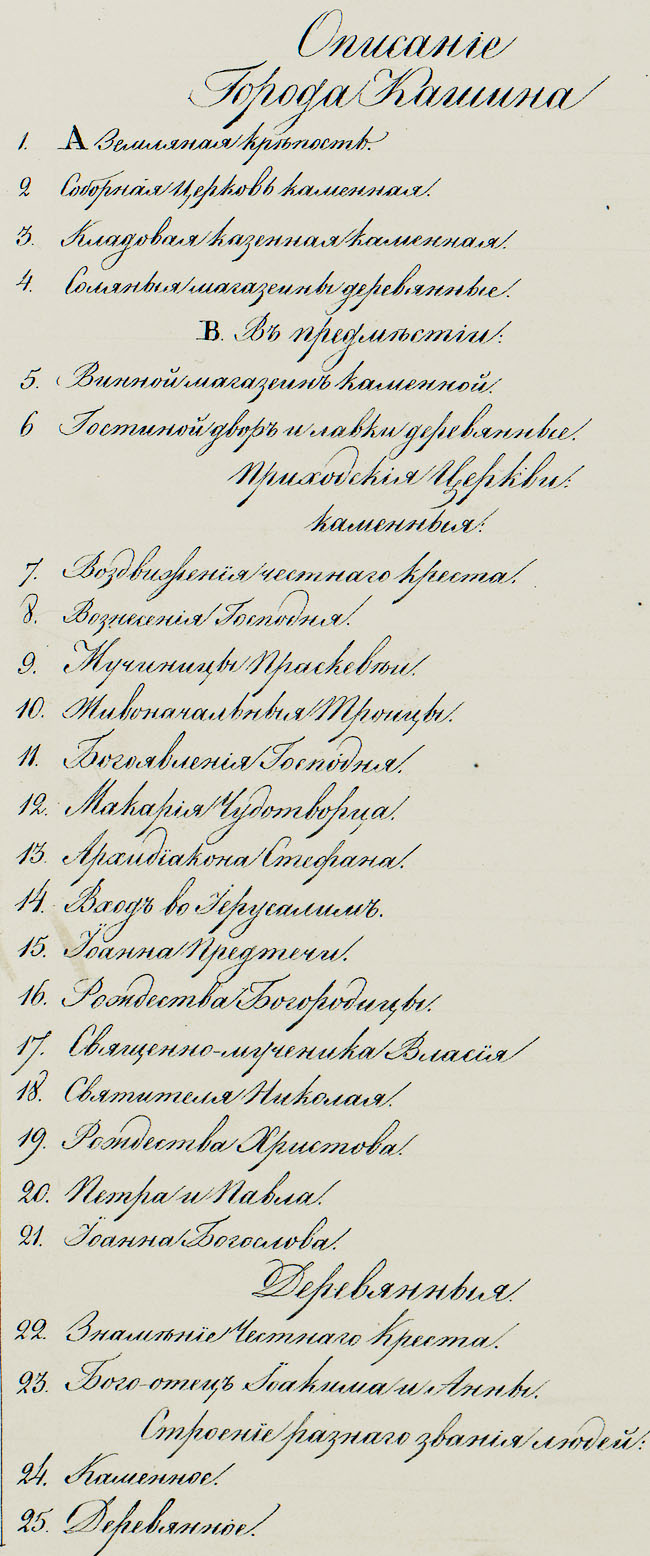 Описаніе
Города Кашина
1. А Земляная крѣпость.
2 Соборная церковь каменная.
3. Кладовая казенная каменная.
4. Соляныя магазеины деревянные.
В. Въ предмѣстіи:
5. Винной магазеинъ каменной.
6 Гостиной дворъ и лавки деревянные.
Приходскія Церкви:
каменныя:
7. Воздвиженія честнаго креста.
8. Вознесенія Господня.
9. Мучиницы Праскевѣи.
10. Живоначальныя Троицы.
11. Богоявленія Господня.
12. Макарія Чудотворца.
13. Архидіакона Стефана.
14. Входъ во Іерусалимъ.
15. Іоанна Предтечи.
16. Рождества Богородицы.
17. Священно-мученика Власія
18. Святителя Николая.
19. Рождества Христова.
20. Петра и Павла.
21. Іоанна Богослова.
Деревянныя.
22. Знамѣніе Честнаго Креста.
23. Бого-отецъ Іоакима и Анны.
Строеніе разнаго званія людей:
24. Каменное.
25. Деревянное.